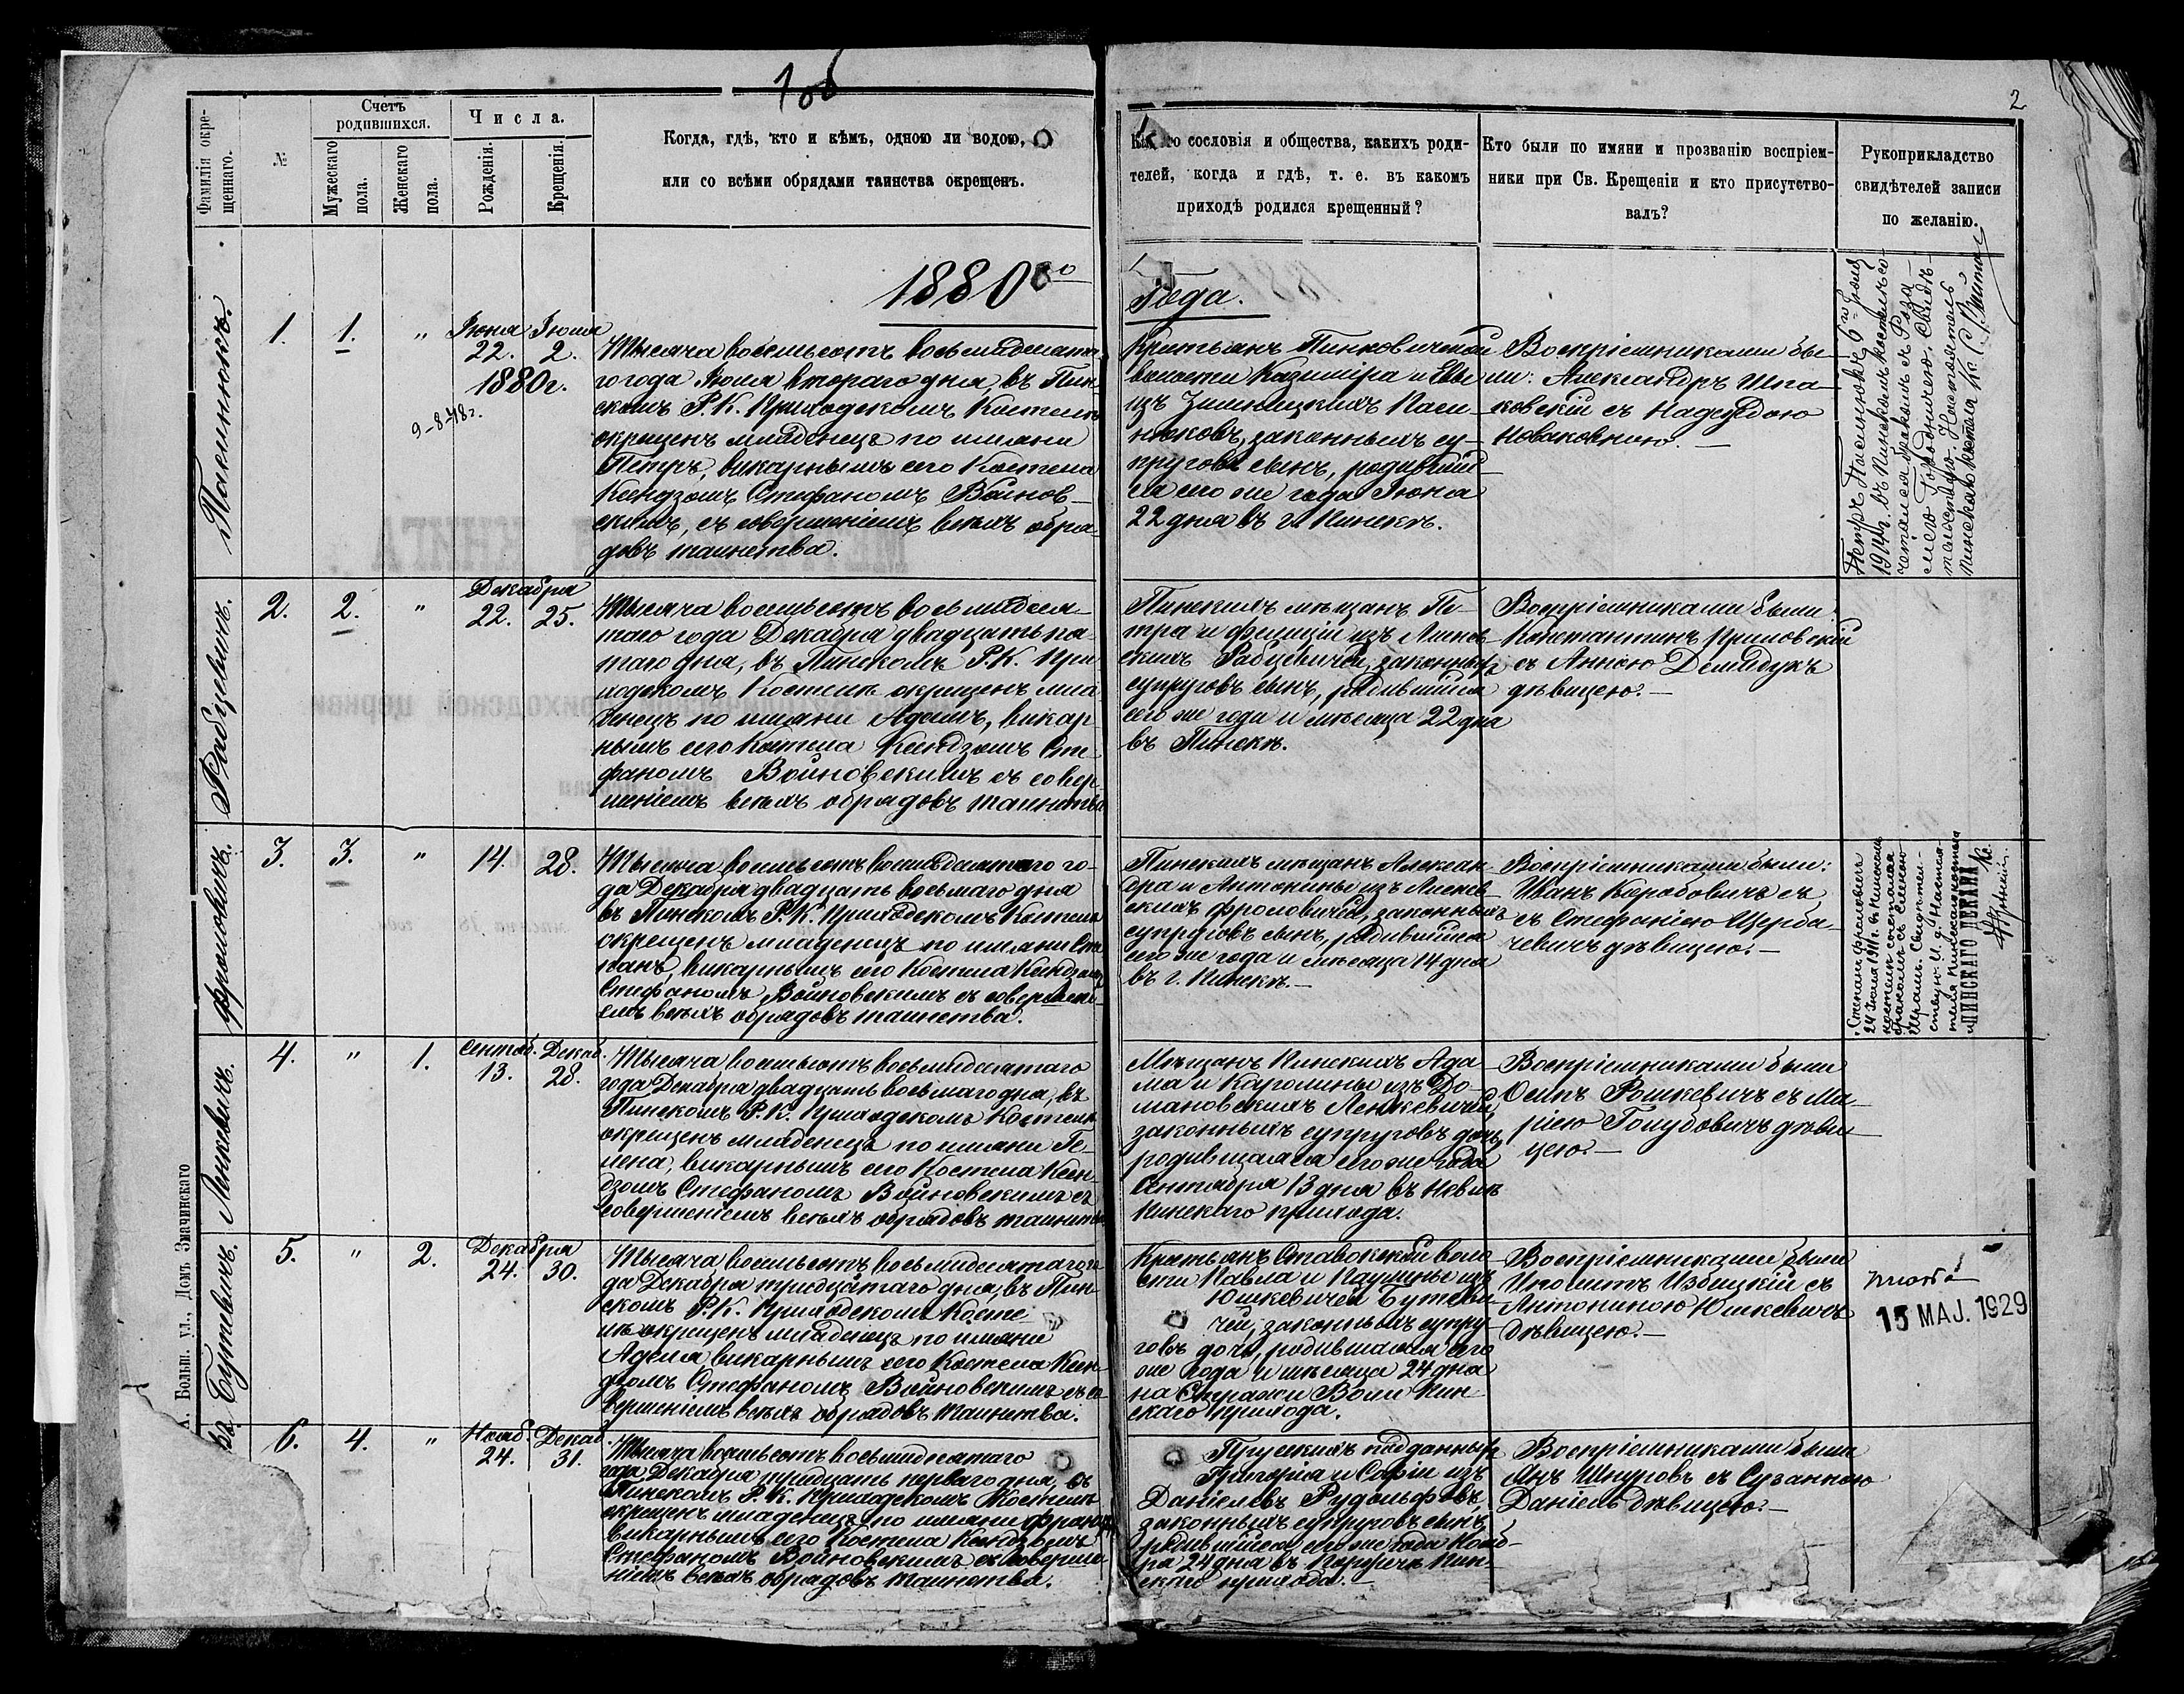 1об
2
Фамилія окре-
щеннаго.
№
Счетъ
родившихся.
Мужескаго
пола.
Женскаго
пола.
Числа.
Рожденія.
Крещенія.
Когда, гдѣ, кто и кѣмъ, одною ли водою,
или со всѣми обрядами таинства окрещенъ.
сословія и общества, какихъ роди-
телей, когда и гдѣ, т. е. въ какомъ
приходѣ родился крещенный?
Кто были по имяни и прозванію воспріем-
ники при Св. Крещеніи и кто присутство-
валъ?
Рукоприкладство
свидѣтелей записи
по желанію.
1880го
Года.
Пасинюкъ.
1.
1.
"
Іюня
22.
Іюля
2.
1880г.
9-8-48г.
Тысяча восемьсотъ восьмидесята-
го года Іюля втораго дня, въ Пин-
скомъ Р.К. Приходскомъ Костелѣ
окрещенъ младенецъ по имяни
Петръ, викарнымъ сего Костела
Ксендзомъ Стефаномъ Войнов-
скимъ, съ совершеніемъ всѣхъ обря-
довъ таинства.
Крестьянъ Пинковичской
волости Казиміра и Евы
изъ Зимницкихъ Паси-
нюковъ, законныхъ су-
пруговъ сынъ, родившій-
ся сего же года Іюня
22 дня въ г. Пинскѣ.
Воспріемниками бы-
ли: Александръ Шпа-
ковскій съ Надеждою
Новаковною.
Петръ Пасинюкъ 6го
191 г. въ Пинскомъ костелѣ со-
четался бракомъ съ Роза-
ліею Городничею. Свидѣ-
тельствую. Настоятель
Пинскаго костела Кс.
Рабцевичъ.
2.
2.
"
Декабря
22.
25.
Тысяча восемьсотъ восьмидеся-
таго года Декабря двадцать пя-
таго дня, въ Пинскомъ Р.К. При
ходскомъ Костелѣ окрещенъ мла
денецъ по имяни Адамъ, викар
нымъ сего Костела Ксендзомъ Сте-
фаномъ Войновскимъ съ совер-
шеніемъ всѣхъ обрядовъ таинства
Пинскихъ мѣщанъ Пе-
тра и Фелиціи изъ Лисов-
скихъ Рабцевичей, законныхъ
супруговъ сынъ, родившійся
сего же года и мѣсяца 22 дня
въ Пинскѣ.
Воспріемниками были:
Константинъ Криловскій
съ Анною Демидукъ
дѣвицею.
Фроловичъ.
3.
3.
"
14.
28.
Тысяча восемьсотъ восьмидесятаго го-
да Декабря двадцать восьмаго дня
въ Пинскомъ Р.К. Приходскомъ Костелѣ
окрещенъ младенецъ по имяни Сте
панъ, викарнымъ сего Костела Ксендзомъ
Стефаномъ Войновскимъ съ соверщені-
емъ всѣхъ обрядовъ таинства.
Пинскихъ мѣщанъ Алексан-
дра и Антонины изъ Лисов-
скихъ Фроловичей, законныхъ
супруговъ сынъ, родившійся
сего же года и мѣсяца 14 дня
въ г. Пинскѣ.
Воспріемниками были:
Иванъ Коробовичъ съ
съ Стефаніею Щерба-
чевичъ дѣвицею.
Степанъ Фроловичъ
24 Іюля 1911 г. въ Пинскомъ
костелѣ сочетался
бракомъ съ Еленою
Свидѣтель-
ствую. И. д. Настоя-
теля Пинскаго костела
ПИНСКАГО ДЕКАНА
Ленкевичъ.
4.
"
1.
Сентяб.
13.
Декаб.
28.
Тысяча восемьсотъ восьмидесятаго
года Декабря двадцать восьмаго дня, въ
Пинскомъ Р.К. Приходскомъ Костелѣ
окрещенъ младенецъ по имяни Ге-
лена, викарнымъ сего Костела Ксен-
дзомъ Стефаномъ Войновскимъ съ
совершеніемъ всѣхъ обрядовъ таинства
Мѣщанъ Пинскихъ Ада-
ма и Каролины изъ До-
мановскихъ Ленкевичей,
законныхъ супруговъ дочь,
родившаяся сего же года
Сентября 13 дня въ Невлѣ
Пинскаго прихода.
Воспріемниками были
Осипъ Рошкевичъ съ Ма-
ріею Голубовичъ дѣви-
цею.
Бутевичъ.
5.
"
2.
Декабря
24.
30.
Тысяча восемьсотъ восьмидесятаго го
да Декабря тридцатаго дня, въ Пин-
скомъ Р.К. Приходскомъ Косте-
лѣ окрещенъ младенецъ по имяни
Аделя, викарнымъ сего Костела Ксен-
дзомъ Стефаномъ Войновскимъ съ со
вершеніемъ всѣхъ обрядовъ таинства.
Крестьянъ Ставокской воло
сти Павла и Паулины изъ
Юшкевичей Бутеви-
чей, законныхъ супру-
говъ дочь, родившаяся сего
же года и мѣсяца 24 дня
на Стражи Воли Пин-
скаго прихода.
Воспріемниками были
Иполитъ Избицкій съ
Антониною Юшкевичъ
дѣвицею.
15 MAJ. 1929
6.
4.
"
Нояб.
24.
Декаб.
31.
Тысяча восемьсотъ восьмидесятаго
года Декабря тридцать перваго дня, въ
Пинскомъ Р.К. Приходскомъ Костелѣ
окрещенъ младенецъ по имяни Франц
викарнымъ сего Костела Ксендзомъ
Стефаномъ Войновскимъ съ соверше-
ніемъ всѣхъ обрядовъ таинства.
Прусскихъ подданныхъ
Григорія и Софіи изъ
Даніелевъ Рудольфовъ,
законныхъ супруговъ сынъ,
родившійся сего же года Нояб-
ря 24 дня въ Пин-
скаго прихода.
Воспріемниками были
Янъ Шнуровъ съ Сузанною
Даніель дѣвицею.
Больш. ул., Домъ Значинскаго